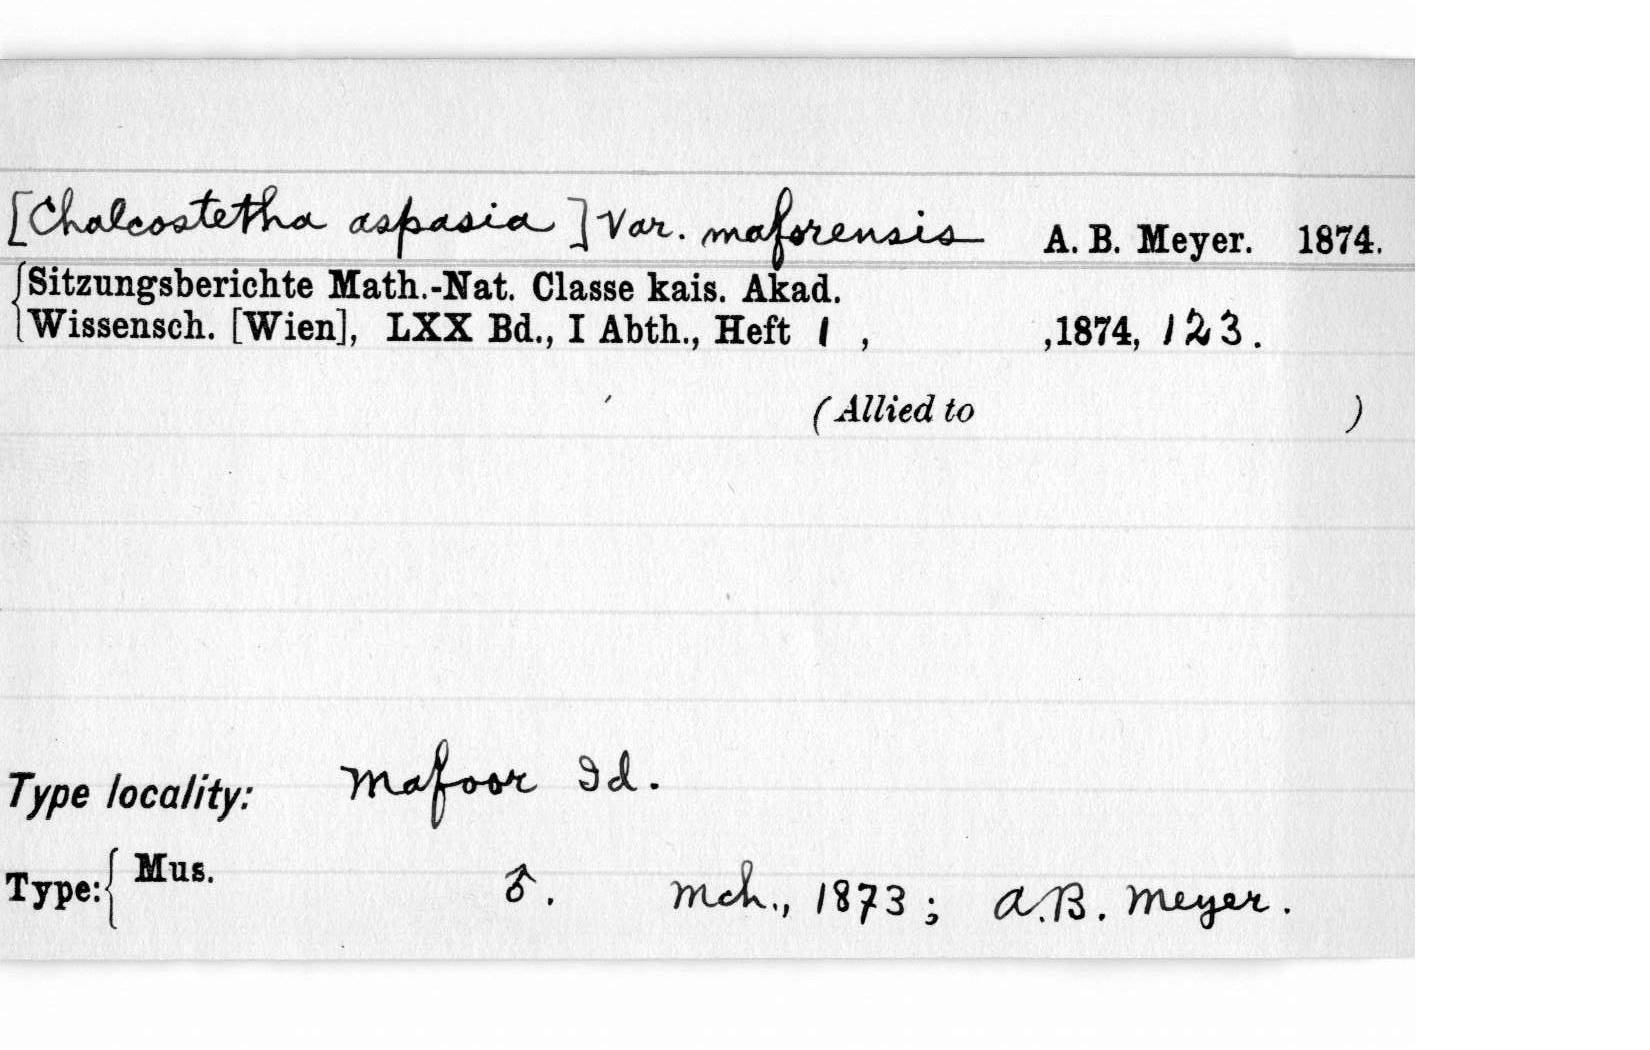 [Chalcostetha aspasia] Var. maforensis A. B. Meyer. 1874.
Sitzungsberichte Math.-Nat. Classe kais. Akad.
Wissensch. [Wien], LXX Bd., I Abth., Heft 1 , ,1874, 123.
(Allied to )
Type locality: Mafoor Id.
Type: { Mus. ♂. Mch., 1873; A.B. Meyer.